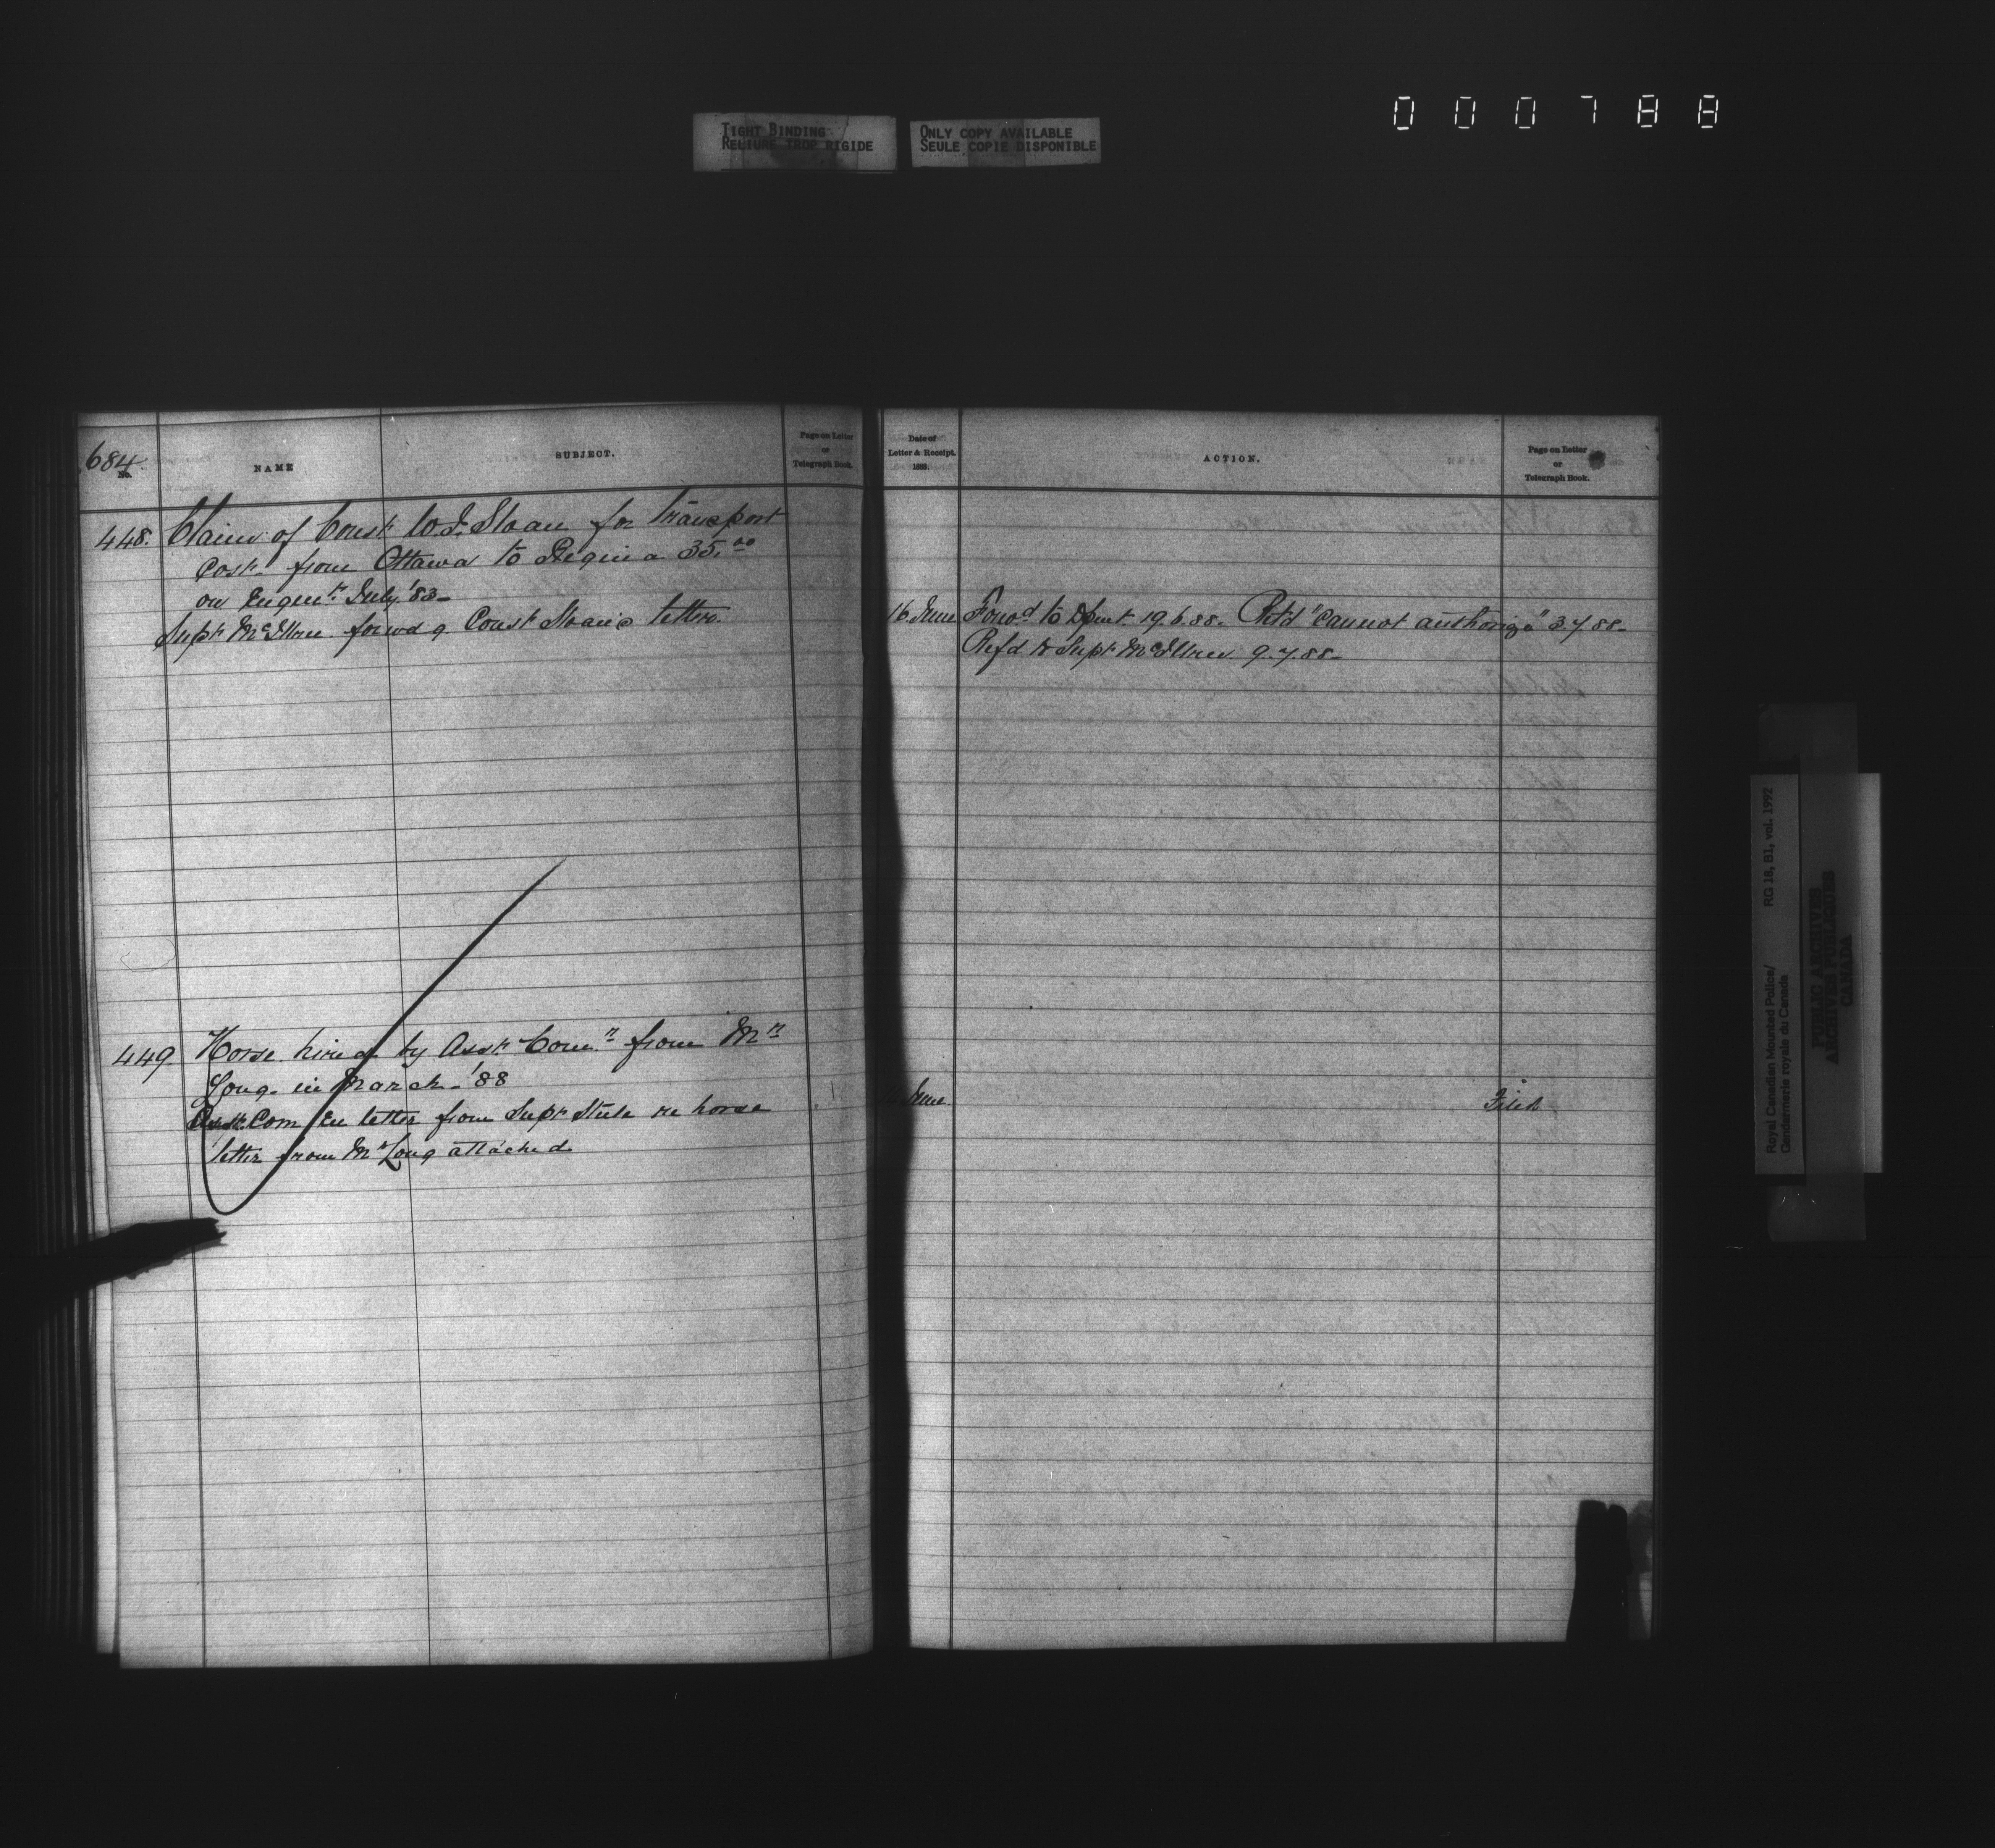 000788
TIGHT BINDING
RELIURE TROP RIGIDE
ONLY COPY AVAILABLE
SEULE COPIE DISPONIBLE
684.
No.
NAME
SUBJECT.
Page on Letter
or
Telegraph Book.
448. Claim of Const W.J. Sloan for Transport
Cost- from Ottawa to Regina 35.00
on Engmt. July '83-
Supt McIllree forwdg Const Sloan's letter.
449. Horse hired by Asst Comr. from Mr
Long. in March- '88
Asst. Com En letter from Supt Steele re horse
letter from Mr Long attached
Date of
Letter & Receipt.
188 .
ACTION.
Page on Letter
or
Telegraph Book.
16 June Forwd to Dpmt 19.6.88. Retd "Cannot authorize" 3.7.88-
Refd to Supt McIllree 9.7.88-
June
Filed
Royal Canadian Mounted Police/ RG 18, B1, vol. 1992
Gendarmerie royale du Canada
PUBLIC ARCHIVES
ARCHIVES PUBLIQUES
CANADA